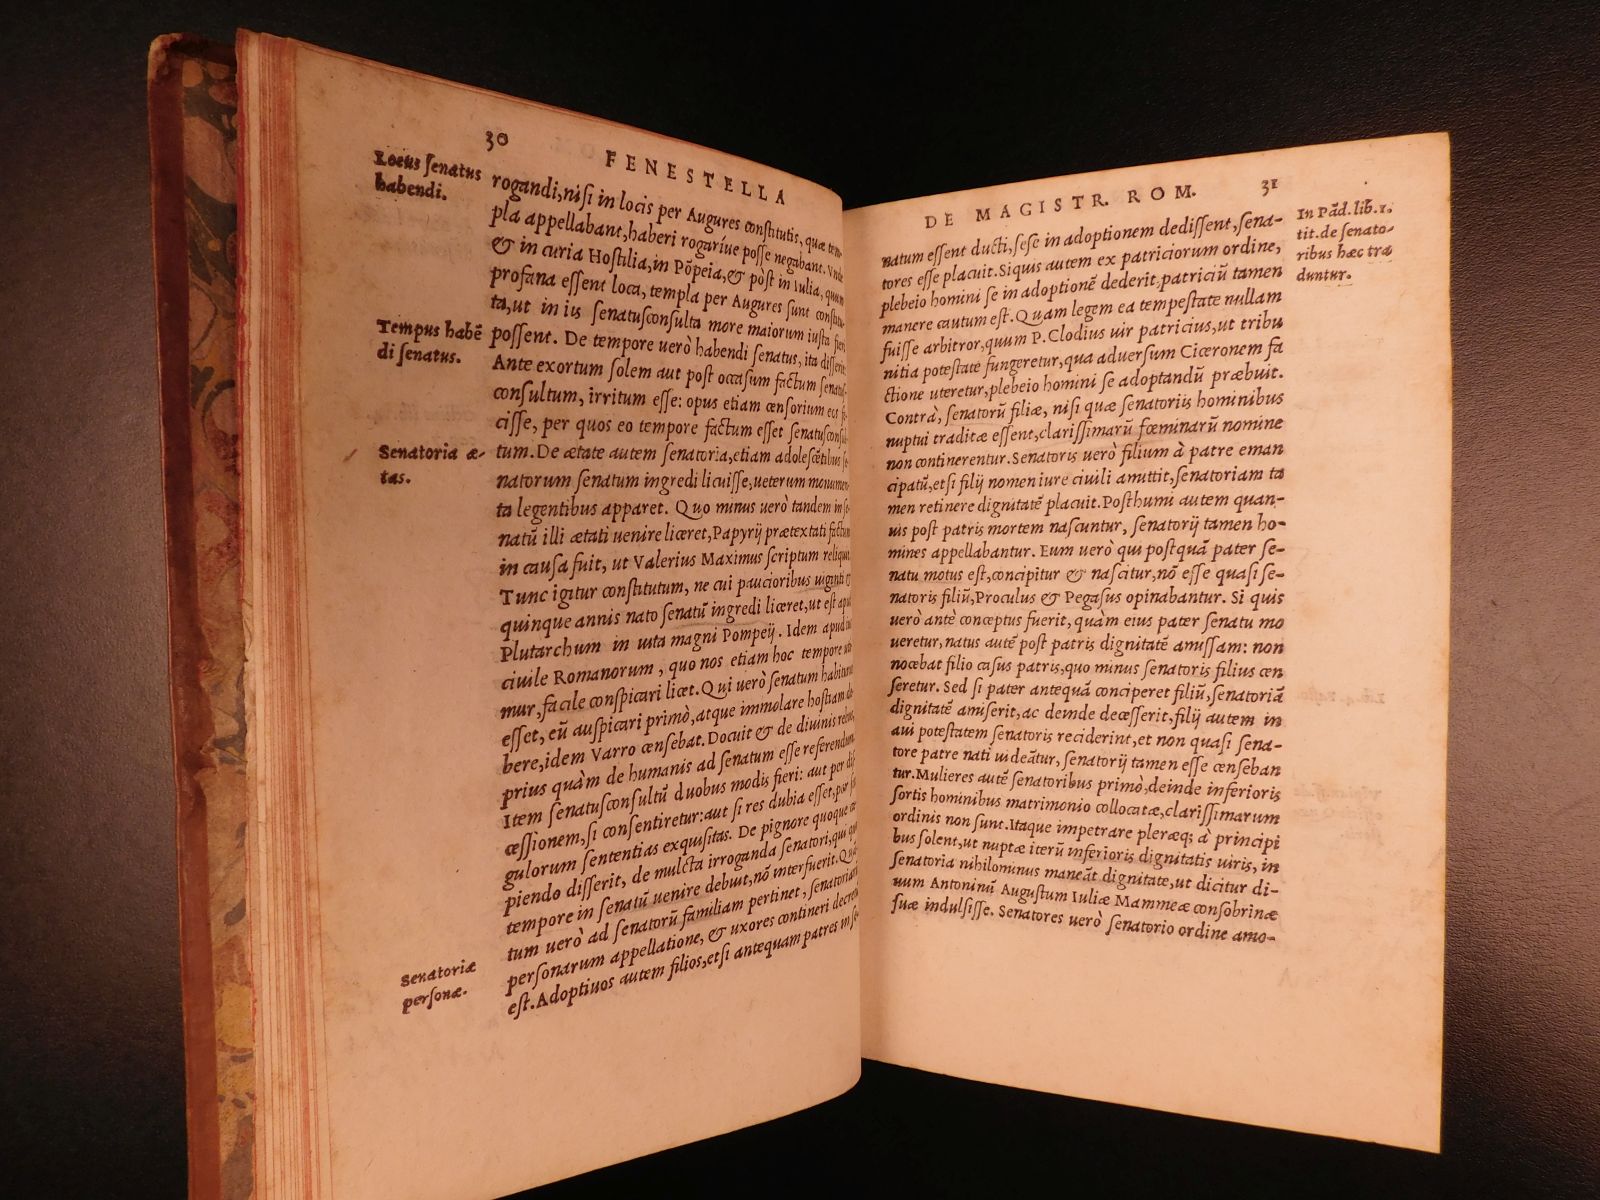 30
FENESTELLA
Locus ſenatus
habendi.
rogandi, niſi in locis per Augures conſtitutis, quæ tem-
pla appellabant, haberi rogaríue poſſe negabant. Vnde
& in curia Hoſtilia, in Pōpeia, & pòſt in Iulia, quum
profana eſſent loca, templa per Augures ſunt conſtitu-
ta, ut in iis ſenatuſconſulta more maiorum iuſta fieri
Tempus habē
di ſenatus.
poſſent. De tempore uerò habendi ſenatus, ita diſſerit:
Ante exortum ſolem aut poſt occaſum factum ſenatuſ-
conſultum, irritum eſſe: opus etiam cenſorium eos fe-
ciſſe, per quos eo tempore factum eſſet ſenatuſconſul-
Senatoria æ-
tas.
tum. De ætate autem ſenatoria, etiam adoleſcētibus ſe-
natorum ſenatum ingredi licuiſſe, ueterum monumen-
ta legentibus apparet. Quo minus uerò tandem in ſe-
natū illi ætati uenire liceret, Papyrij prætextati factum
in cauſa fuit, ut Valerius Maximus ſcriptum reliquit.
Tunc igitur conſtitutum, ne cui paucioribus uiginti &
quinque annis nato ſenatū ingredi liceret, ut eſt apud
Plutarchum in uita magni Pompeij. Idem apud ius
ciuile Romanorum, quo nos etiam hoc tempore uti-
mur, facile conſpicari licet. Qui uerò ſenatum habiturus
eſſet, eū auſpicari primò, atque immolare hoſtiam de-
bere, idem Varro cenſebat. Docuit & de diuinis rebus,
prius quàm de humanis ad ſenatum eſſe referendum.
Item ſenatuſconſultū duobus modis fieri: aut per diſ-
ceſſionem, ſi conſentiretur: aut ſi res dubia eſſet, per ſin-
gulorum ſententias exquiſitas. De pignore quoque ca-
piendo diſſerit, de mulcta irroganda ſenatori, qui quo
tempore in ſenatū uenire debuit, nō interfuerit. Quā-
tum uerò ad ſenatorū familiam pertinet, ſenatoriarū
Senatoriæ
perſonæ.
perſonarum appellatione, & uxores contineri decretum
eſt. Adoptiuos autem filios, etſi antequam patres in ſe-
DE MAGISTR. ROM.
31
In Pād. lib. 1.
tit. de ſenato-
ribus hæc tra
duntur.
natum eſſent ducti, ſeſe in adoptionem dediſſent, ſena-
tores eſſe placuit. Siquis autem ex patriciorum ordine,
plebeio homini ſe in adoptionē dederit, patriciū tamen
manere cautum eſt. Quam legem ea tempeſtate nullam
fuiſſe arbitror, quum P. Clodius uir patricius, ut tribu
nitia poteſtate fungeretur, qua aduerſum Ciceronem fa
ctione uteretur, plebeio homini ſe adoptandū præbuit.
Contrà, ſenatorū filiæ, niſi quæ ſenatoriis hominibus
nuptui traditæ eſſent, clariſſimarū fœminarū nomine
non continerentur. Senatoris uerò filium à patre eman
cipatū, etſi filij nomen iure ciuili amittit, ſenatoriam ta
men retinere dignitatē placuit. Poſthumi autem quan-
uis poſt patris mortem naſcuntur, ſenatorij tamen ho-
mines appellabantur. Eum uerò qui poſtquā pater ſe-
natu motus eſt, concipitur & naſcitur, nō eſſe quaſi ſe-
natoris filiū, Proculus & Pegaſus opinabantur. Si quis
uerò antè conceptus fuerit, quàm eius pater ſenatu mo
ueretur, natus autē poſt patris dignitatē amiſſam: non
nocebat filio caſus patris, quo minus ſenatoris filius cen
ſeretur. Sed ſi pater antequā conciperet filiū, ſenatoriā
dignitatē amiſerit, ac deinde deceſſerit, filij autem in
aui poteſtatem ſenatoris reciderint, et non quaſi ſena-
tore patre nati uideātur, ſenatorij tamen eſſe cenſeban
tur. Mulieres autē ſenatoribus primò, deinde inferioris
ſortis hominibus matrimonio collocatæ, clariſſimarum
ordinis non ſunt. Itaque impetrare pleræq; à principi
bus ſolent, ut nuptæ iterū inferioris dignitatis uiris, in
ſenatoria nihilominus maneāt dignitate, ut dicitur di-
uum Antoninū Auguſtum Iuliæ Mammeæ conſobrinæ
ſuæ indulſiſſe. Senatores uerò ſenatorio ordine amo-